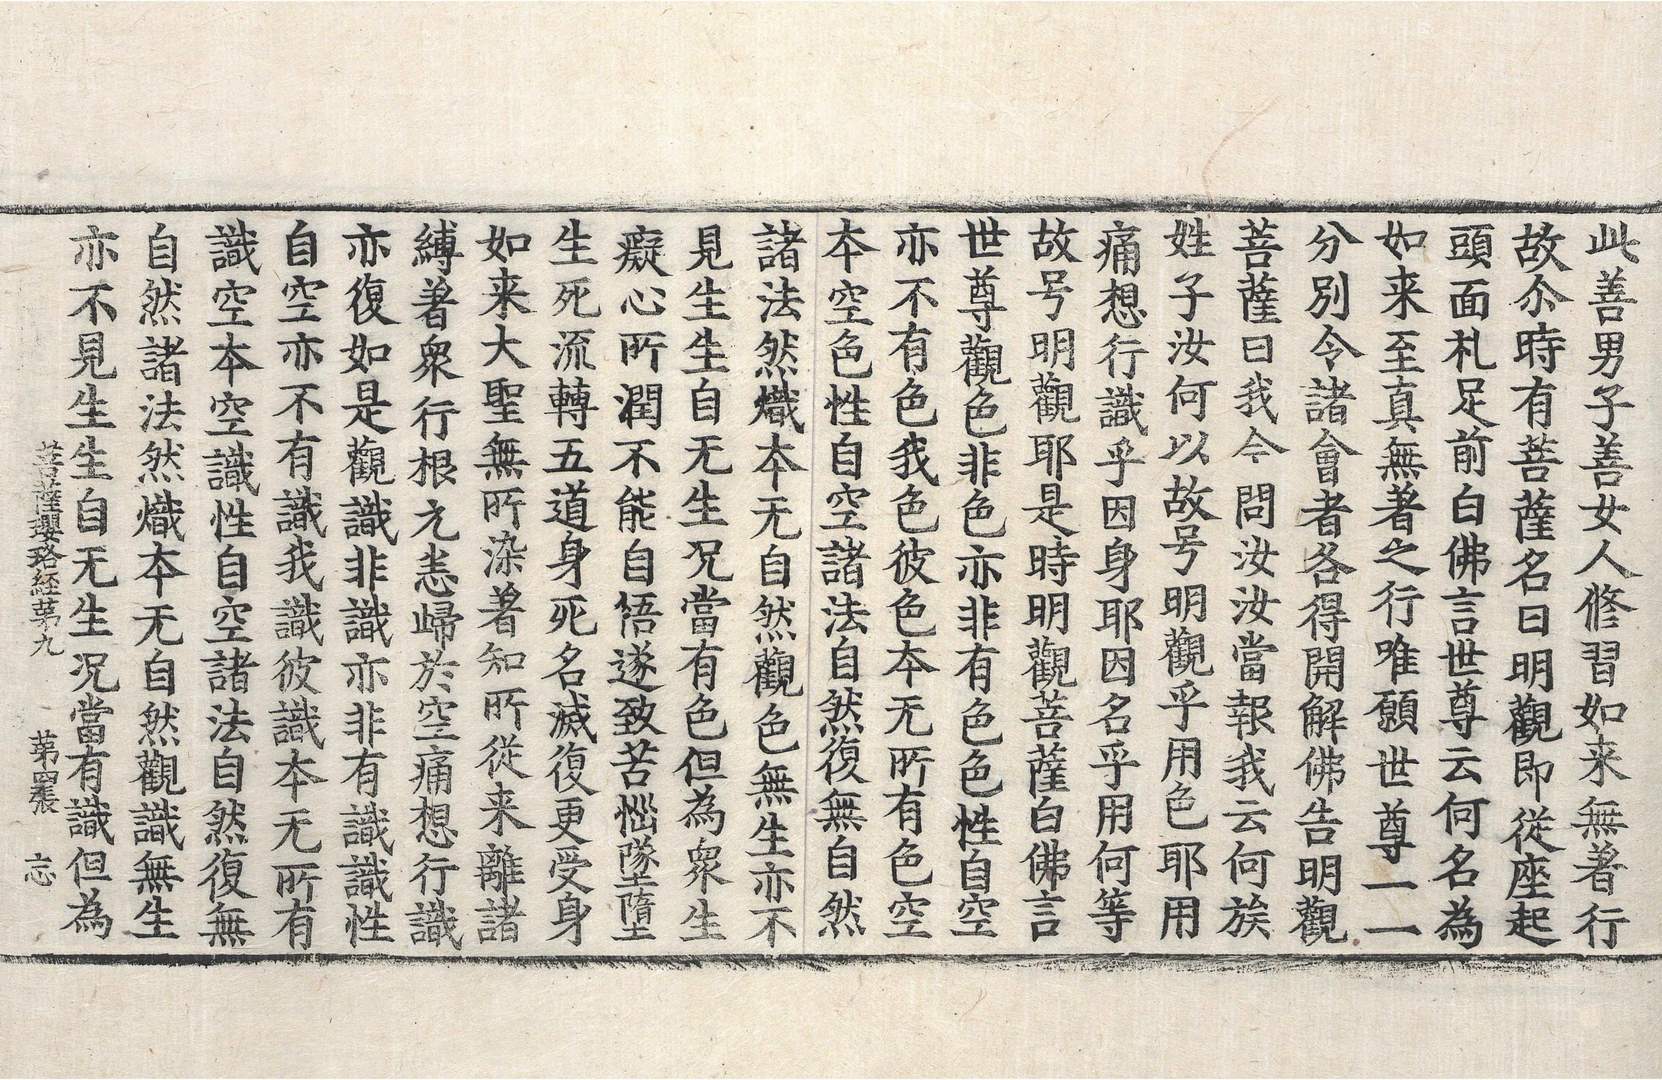 此善男子善女人修習如来無著行
故尒時有菩薩名曰明觀即從座起
頭面札足前白佛言世尊云何名為
如来至真無著之行唯願世尊一一
分別令諸會者各得開解佛告明觀
菩薩曰我今問汝汝當報我云何族
姓子汝何以故号明觀乎用色耶用
痛想行識乎因身耶因名乎用何等
故号明觀耶是時明觀菩薩白佛言
世尊觀色非色亦非有色色性自空
亦不有色我色彼色夲无所有色空
夲空色性自空諸法自然復無自然
諸法然熾夲无自然觀色無生亦不
見生生自无生况當有色但為衆生
癡心所潤不能自悟遂致苦惱墜墮
生死流轉五道身死名滅復更受身
如来大聖無所染著知所從来離諸
縛著衆行根元恚歸於空痛想行識
亦復如是觀識非識亦非有識識性
自空亦不有識我識彼識夲无所有
識空夲空識性自空諸法自然復無
自然諸法然熾夲无自然觀識無生
亦不見生生自无生况當有識但為
菩薩瓔珞経苐九 苐 張 忘